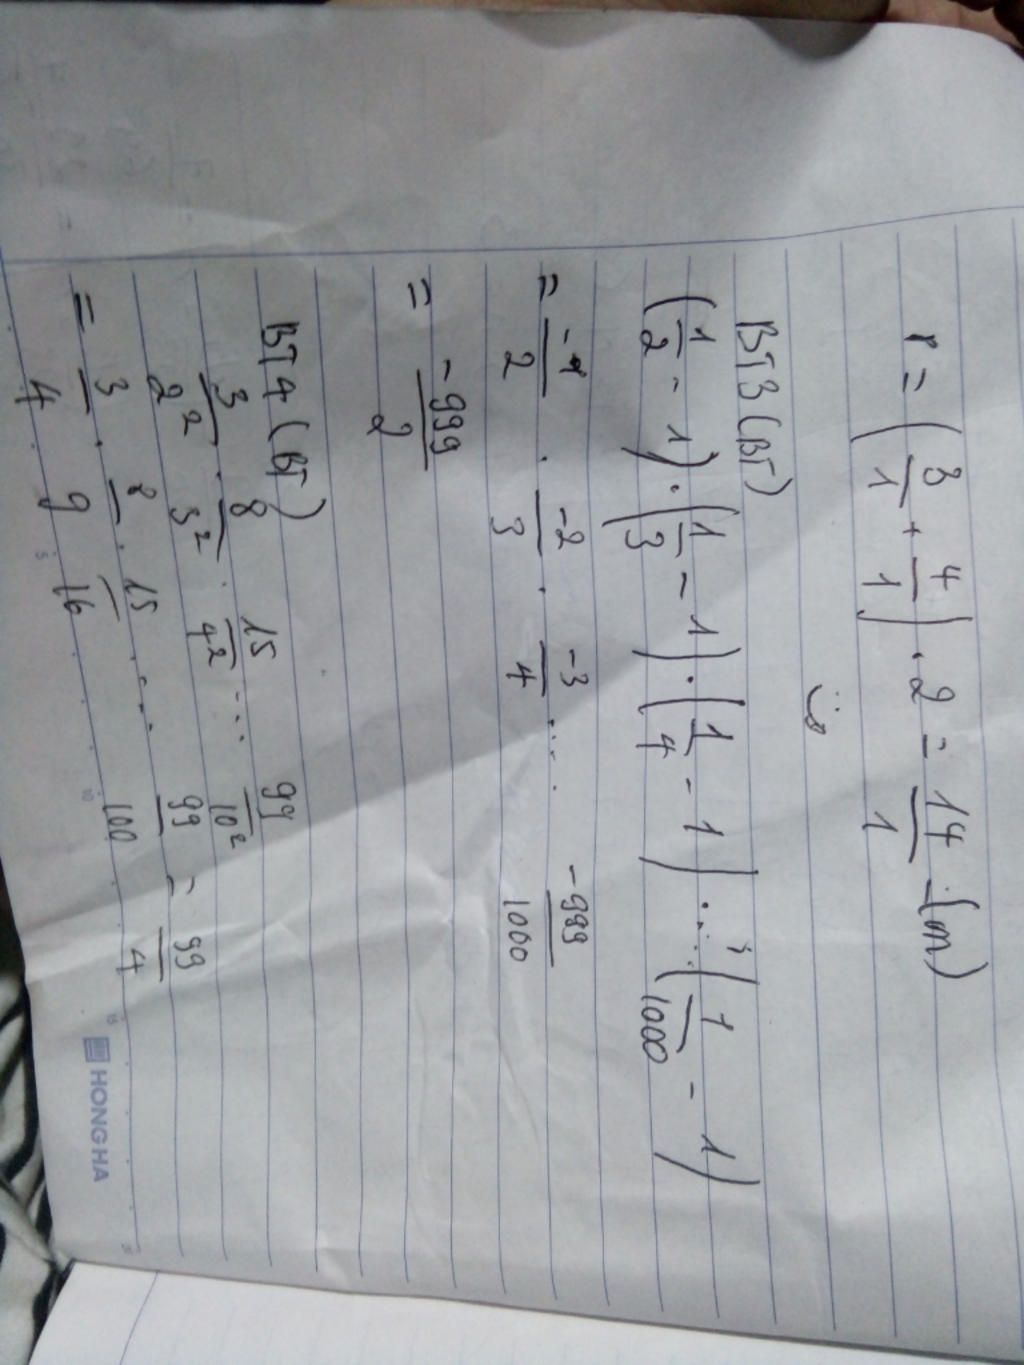 r = ( 3/1 + 4/1 ) . 2 = 14/1 (m)
BT3 (BT)
( 1/2 - 1 ) . ( 1/3 - 1 ) . ( 1/4 - 1 ) . ... ( 1/1000 - 1 )
= -1/2 . -2/3 . -3/4 ... . -999/1000
= -999/2
BT4 (BT)
3/2² . 8/3² . 15/4² ... 99/10²
= 3/4 . 8/9 . 15/16 .... 99/100 = 99/4
HONG HA